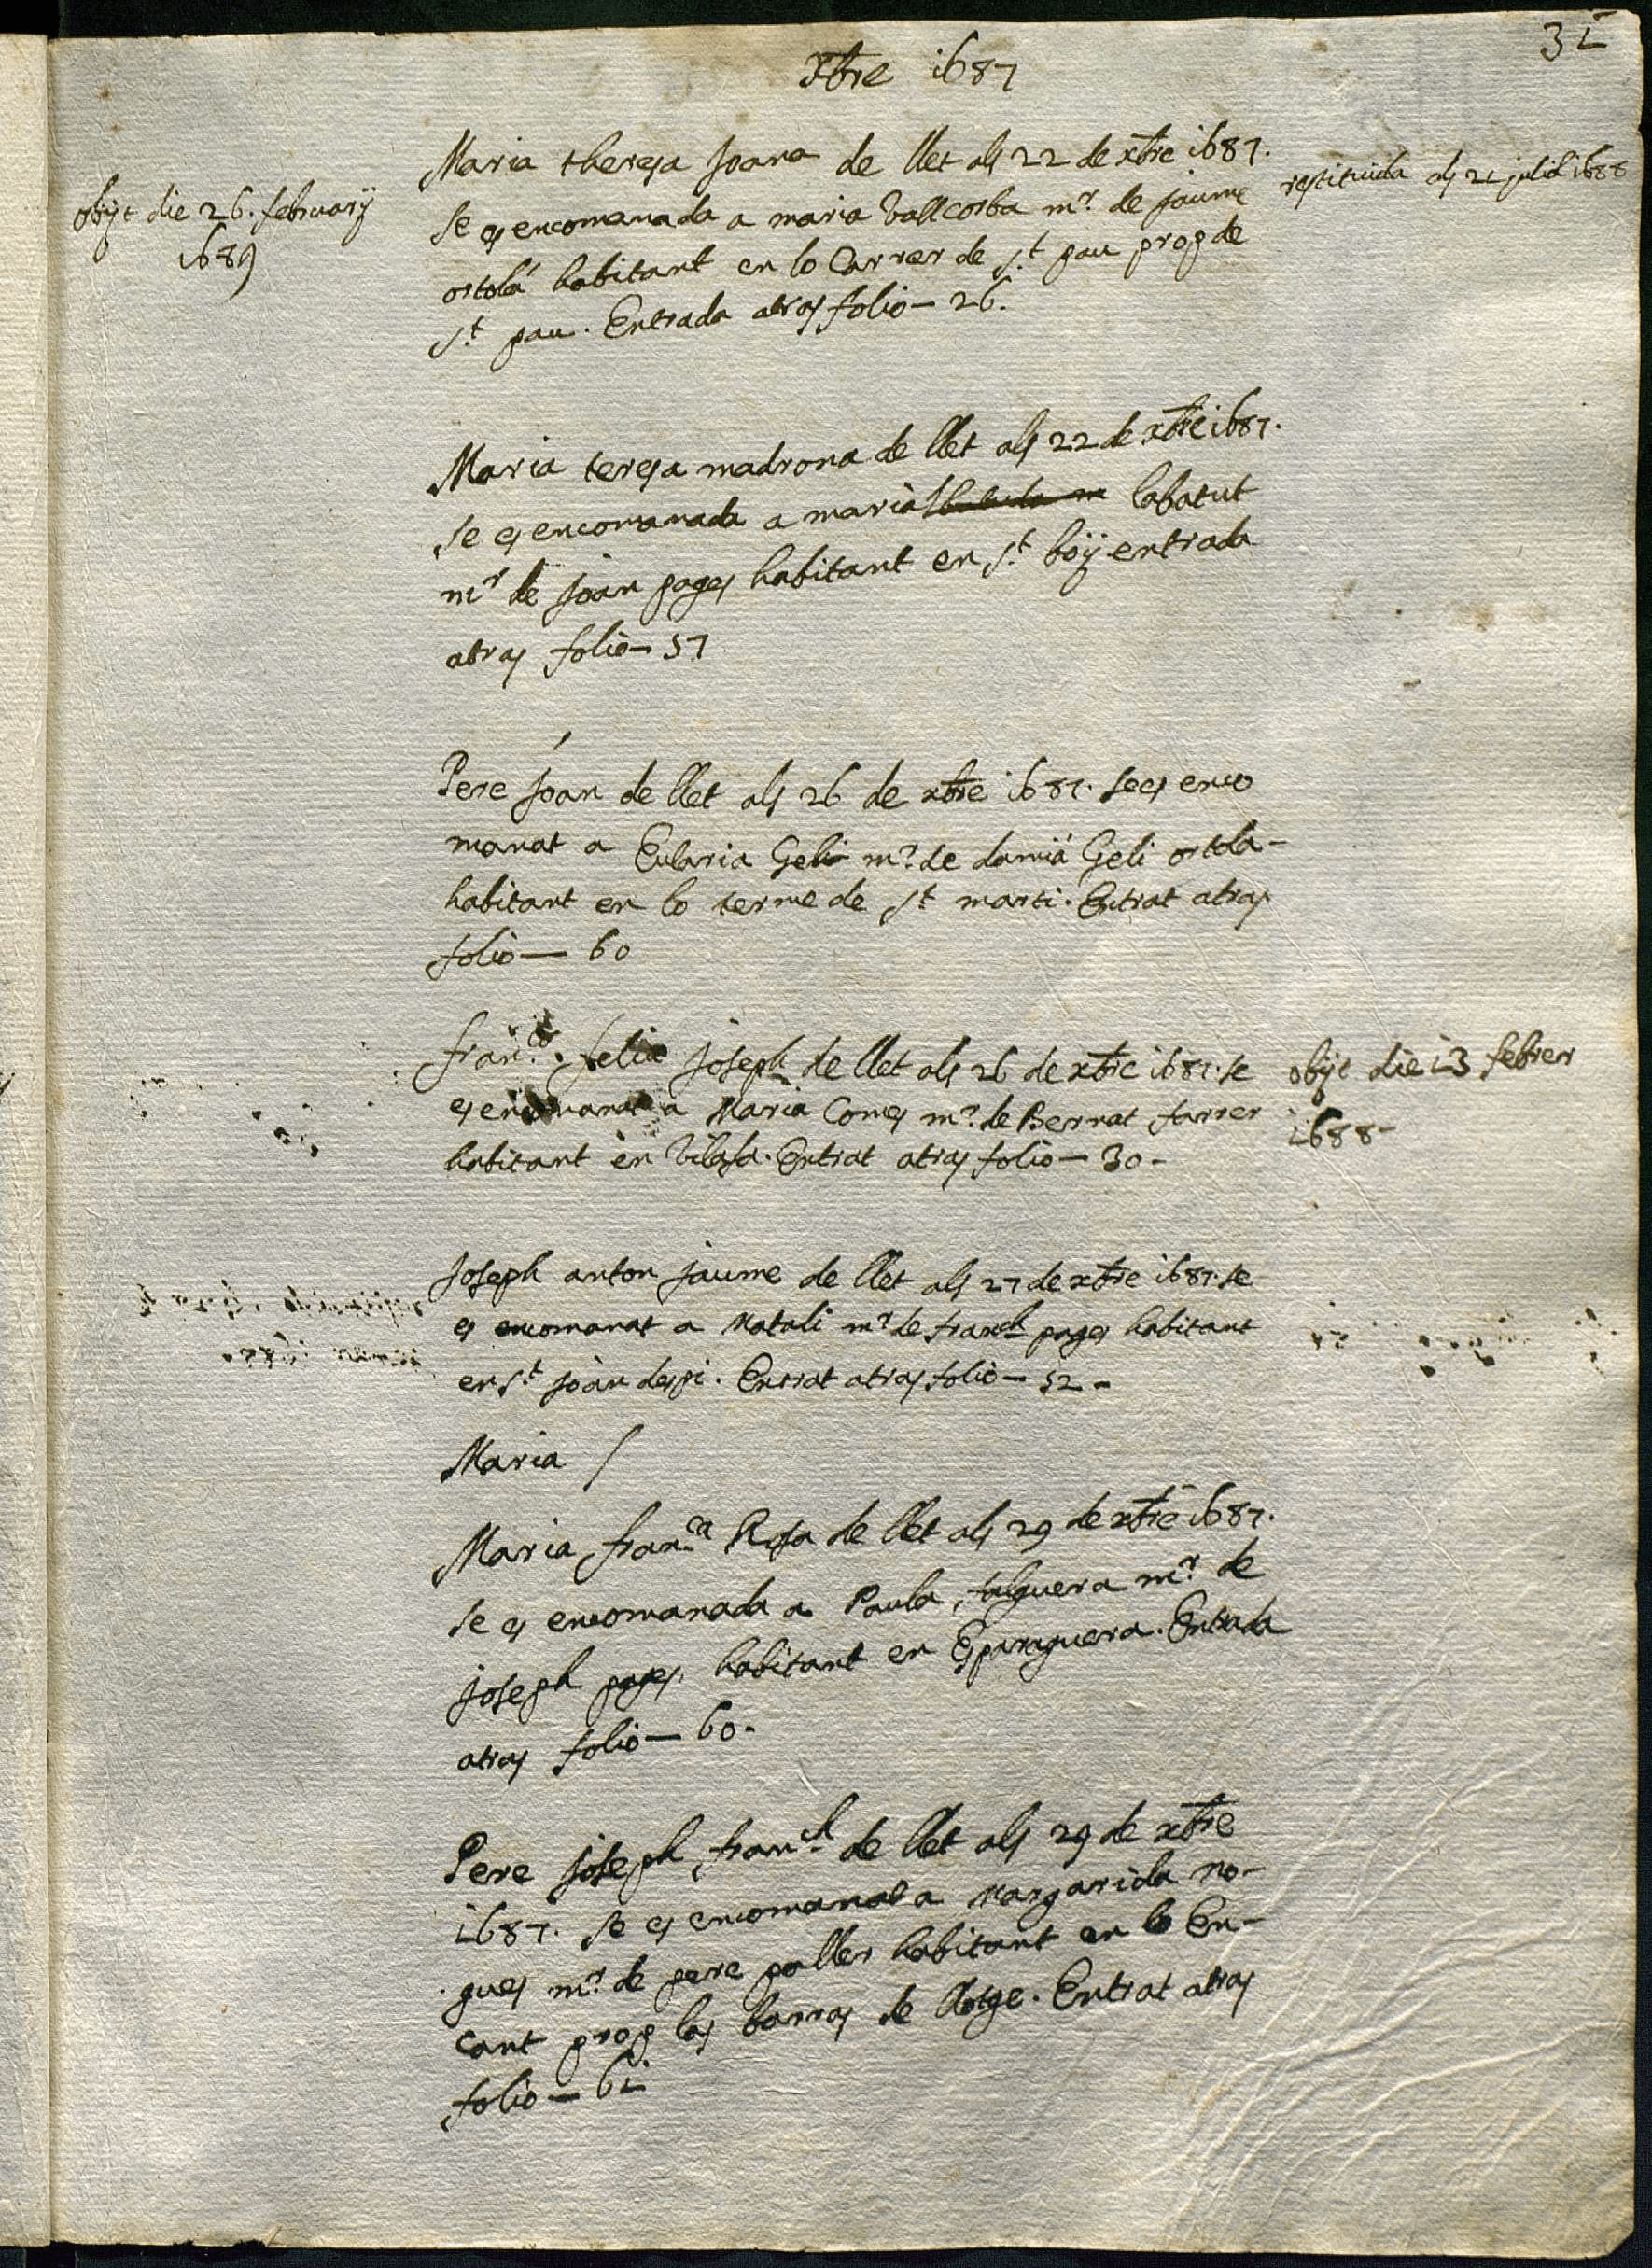 31
xbre 1687
Maria theresa Joana de llet als 22 de xbre 1687.
se es encomanada a maria Vallcorba mr. de jaume
ortolá habitant en lo Carrer de st. pau prop de
st. pau. Entrada atras folio - 26.
obijt die 26. februarij
1689
restituida als 21 juliol 1688
Maria teresa madrona de llet als 22 de xbre 1687.
se es encomanada a maria labatut
mr de joan pages habitant en st. boÿ entrada
atras folio - 57
Pere Joan de llet als 26 de xbre 1687. se es enco
manat a Eularia Geli mr. de damiá Geli ortola -
habitant en lo terme de st. marti. Entrat atras
folio - 60
franco. feliu joseph de llet als 26 de xbre 1687. se
es encomanat a Maria Comes mr. de Bernat farrer
habitant en Vilasa. Entrat atras folio - 30 -
obijt die 13 febrer
1688 -
Joseph anton jaume de llet als 27 de xbre 1687. se
es encomanat a Natali mr. de franch pages habitant
en st. joan despi. Entrat atras folio - 52 -
Maria /
Maria franca. Rosa de llet als 29 de xbre 1687.
se es encomanada a Paula falguera mr. de
joseph pages, habitant en Esparaguera. Entrada
atras folio - 60 -
Pere joseph franch. de llet als 29 de xbre
1687. se es encomanat a Margarida no-
gues mr. de pere paller habitant en lo En-
cant prop las barras de llotge. Entrat atras
folio - 61